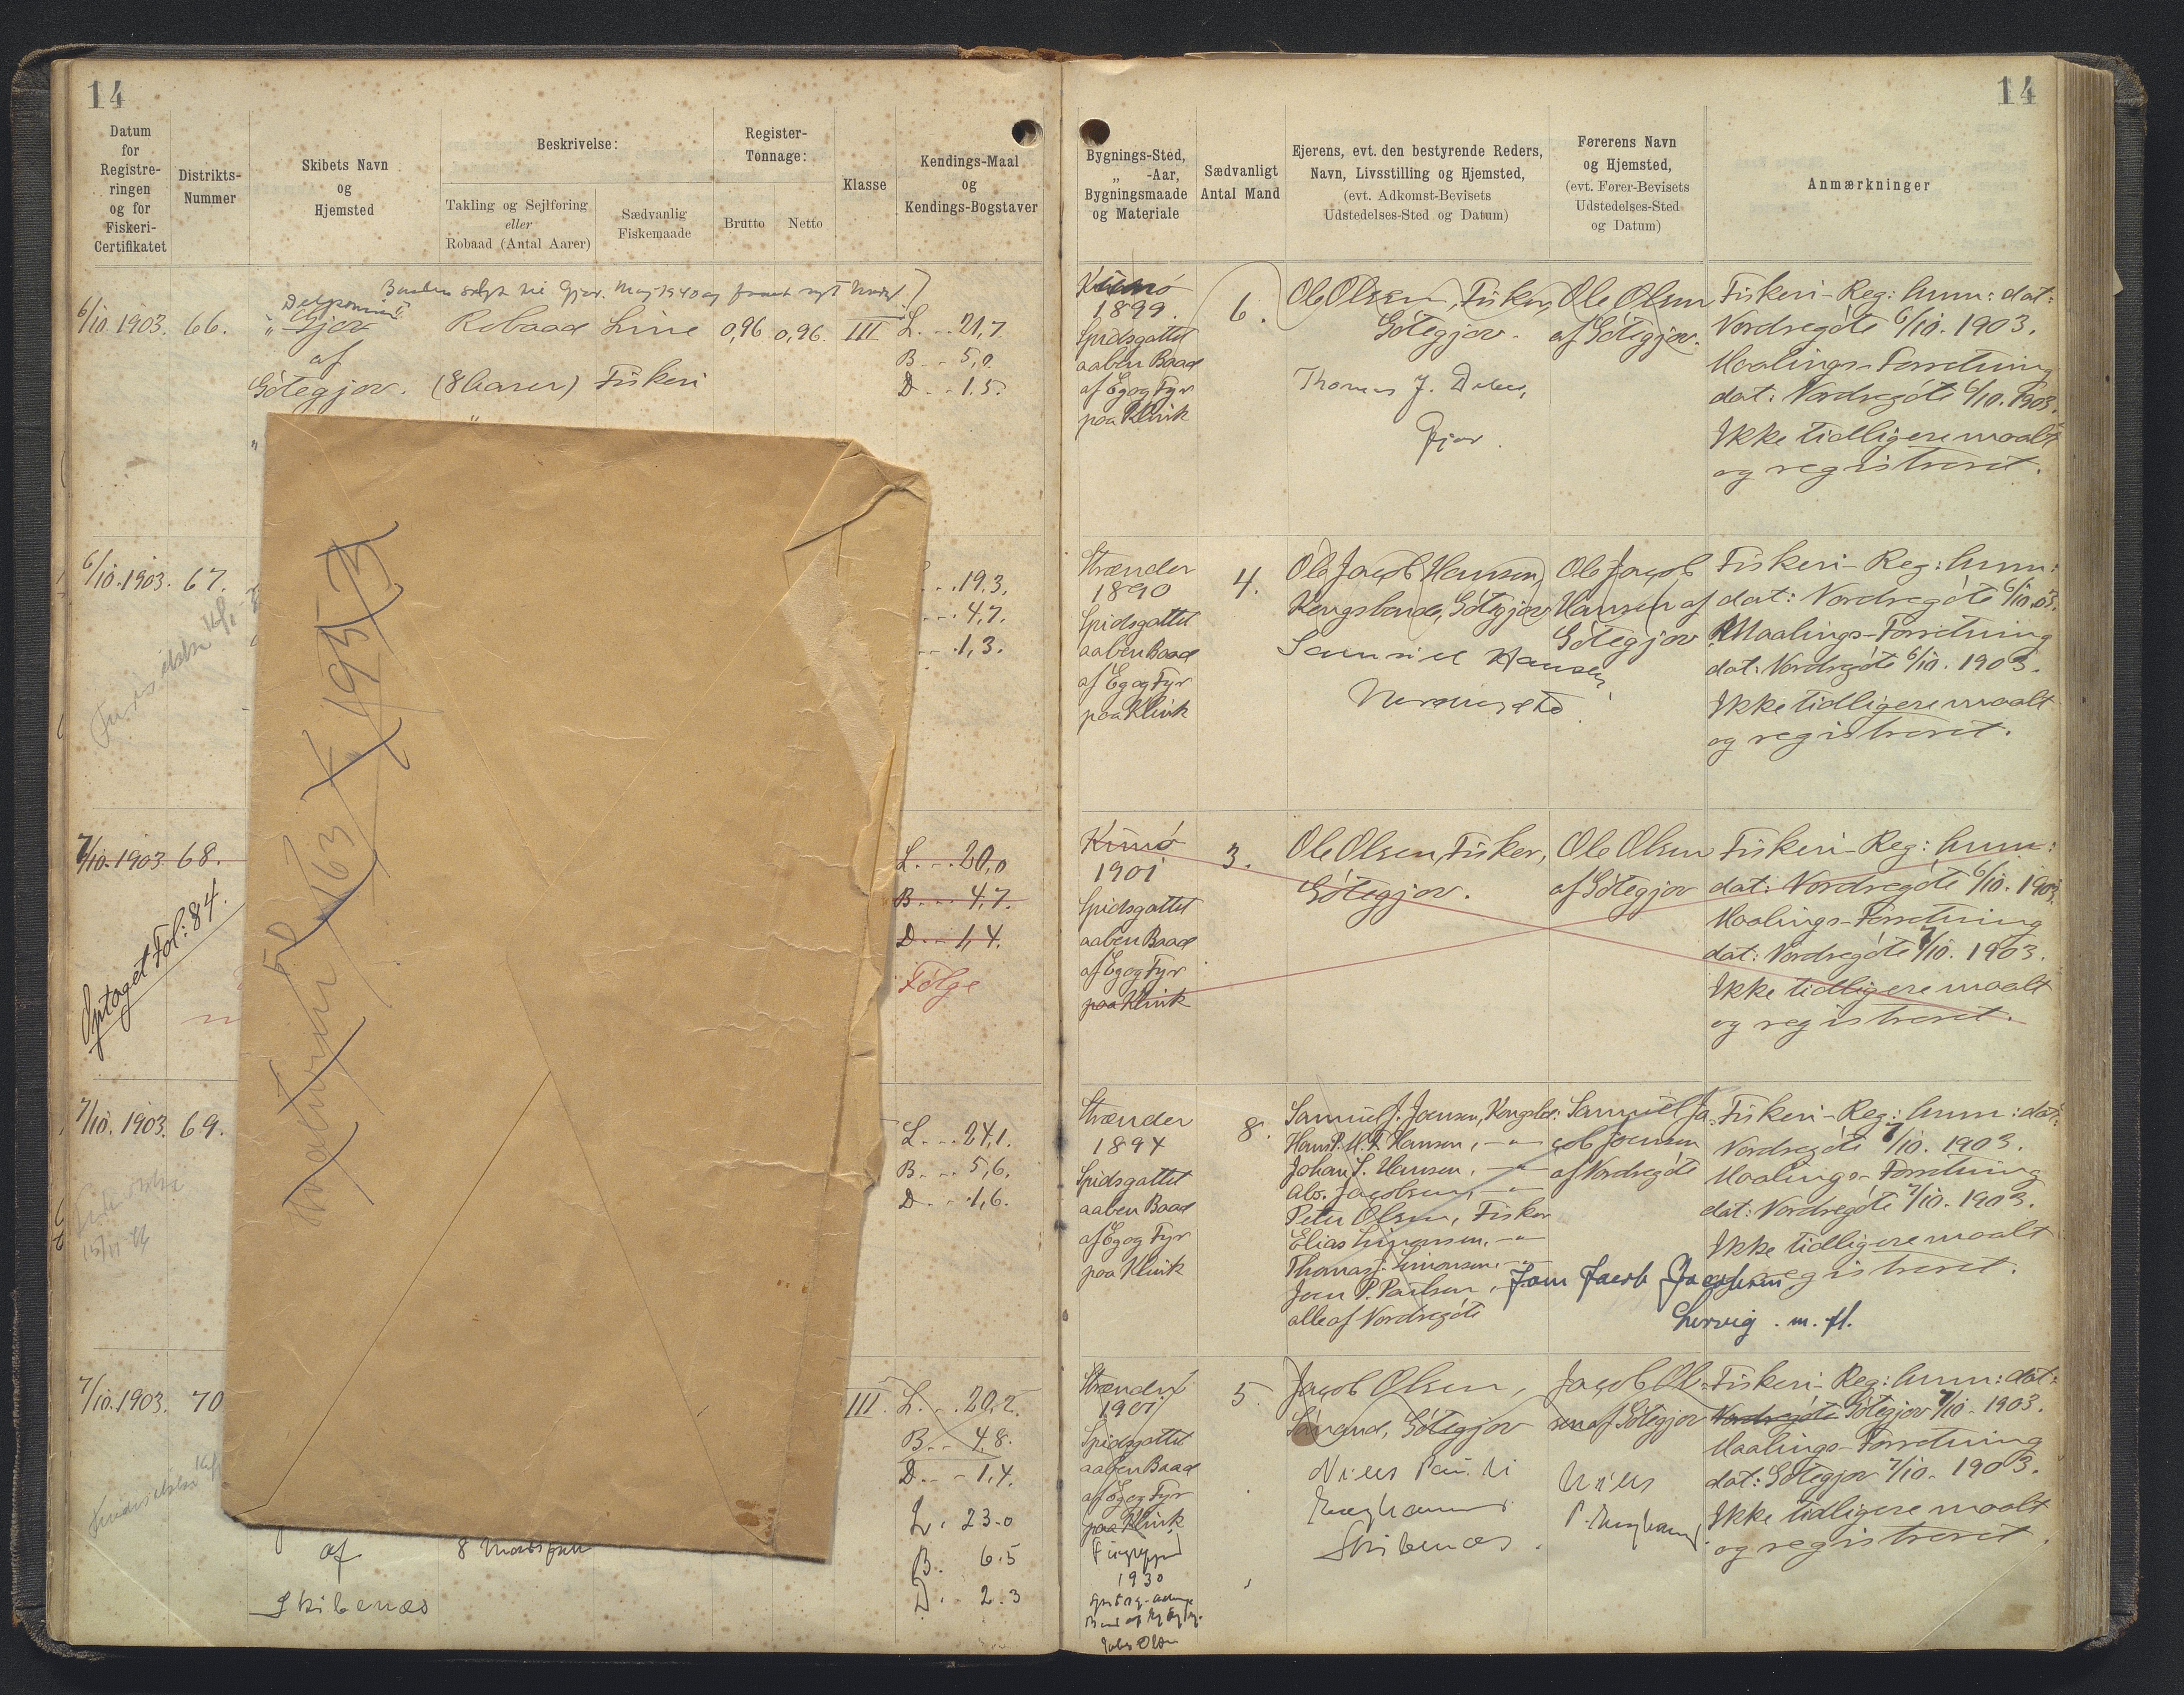 14
Datum
for
Registre-
ringen
og for
Fiskeri-
Certifikatet
Distrikts-
Nummer
Skibets Navn
og
Hjemsted
Beskrivelse:
Takling og Sejlføring
eller
Robaad (Antal Aarer)
Sædvanlig
Fiskemaade
Register-
Tonnage:
Brutto
Netto
Klasse
Kendings-Maal
og
Kendings-Bogstaver
6/10. 1903. 66.
Gjov
af
Götegjov.
Robaad
(8 Aarer)
Line
Fiskeri
0,96 0,96. III
L. - . 21,7.
B. - . 5,0
D. - . 1,5.
6/10. 1903. 67.
19,3.
4,7.
1,3.
7/10. 1903. 68.
Optaget Fol: 84.
L. - . 20,0
B. - . 4,7.
D. - . 1,4.
Følge
7/10. 1903. 69.
L. - . 24,1.
B. - . 5,6.
D. - . 1,6.
7/10. 1903. 70
III.
L. - . 20,2.
B. - . 4,8.
D. - . 1,4.
L. 23.0
B. 6.5
D. 2.3
af
Skibenæs
8
14
Bygnings-Sted,
„ -Aar,
Bygningsmaade
og Materiale
Sædvanligt
Antal Mand
Ejerens, evt. den bestyrende Reders,
Navn, Livsstilling og Hjemsted,
(evt. Adkomst-Bevisets
Udstedelses-Sted og Datum)
Førerens Navn
og Hjemsted,
(evt. Fører-Bevisets
Udstedelses-Sted
og Datum)
Anmærkninger
1899.
Spidsgattet
aaben Baad
af Eg og Fyr
paa Klink
6.
Ole Olsen, Fisker,
Götegjov.
Thomas J.
Gjov.
Ole Olsen
af Götegjov.
Fiskeri-Reg: Anm: dat:
Nordregöte 6/10. 1903.
Maalings-Forretning
dat: Nordregöte 6/10. 1903.
Ikke tidligere maalt
og registreret.
Strænder
1890
Spidsgattet
aaben Baad
af Eg og Fyr
paa Klink
4.
Ole Jacob Hansen,
Kongsbonde, Götegjov
Samuel Hansen
Ole Jacob
Hansen af
Götegjov
Fiskeri-Reg: Anm:
dat: Nordregöte 6/10. 03.
Maalings-Forretning
dat: Nordregöte 6/10. 1903.
Ikke tidligere maalt
og registreret.
Kunö
1901
Spidsgattet
aaben Baad
af Eg og Fyr
paa Klink
3.
Ole Olsen, Fisker,
Götegjov.
Ole Olsen
af Götegjov
Fiskeri-Reg: Anm:
dat: Nordregöte 6/10. 1903.
Maalings-Forretning
dat: Nordregöte 7/10. 1903.
Ikke tidligere maalt
og registreret.
Strænder
1894
Spidsgattet
aaben Baad
af Eg og Fyr
paa Klink
8.
Samuel J. Joensen, Kongsbd:
Hans P. M. F. Hansen, - „ -
Johan S. Hansen, - „ -
Abs. Jacobsen, - „ -
Peter Olsen, Fisker
Elias Simonsen, - „ -
Thomas J. Simonsen, - „ -
Joen P. Poulsen,
alle af Nordregöte
Samuel Ja-
cob Joensen
af Nordregöte
Fiskeri-Reg: Anm: dat:
Nordregöte 7/10. 1903.
Maalings-Forretning
dat: Nordregöte 7/10. 1903.
Ikke tidligere maalt
og registreret.
Jacob Jacobsen
Lervig. m. fl.
Strender
1901
Spidsgattet
aaben Baad
af Eg og Fyr
paa Klink
1930
5
Jacob Olsen,
Götegjov
Niels
Skibenæs.
Jacob Ol-
sen af Götegjov
Niels
Fiskeri-Reg: Anm: dat:
Nordregöte Götegjov 7/10. 1903.
Maalings-Forretning
dat: Götegjov 7/10. 1903.
Ikke tidligere maalt
og registreret.